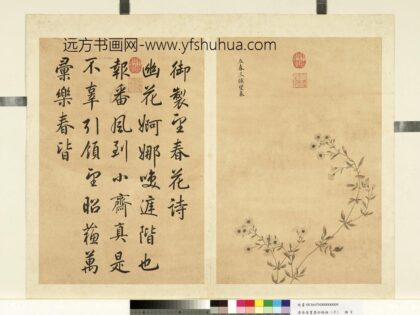 远方书画网-www.yfshuhua.com
御製望春花詩
幽花婀娜庭階也
報番風到小齋真是
不辜引領望昭蘓萬
彙樂春皆
立春三候望春